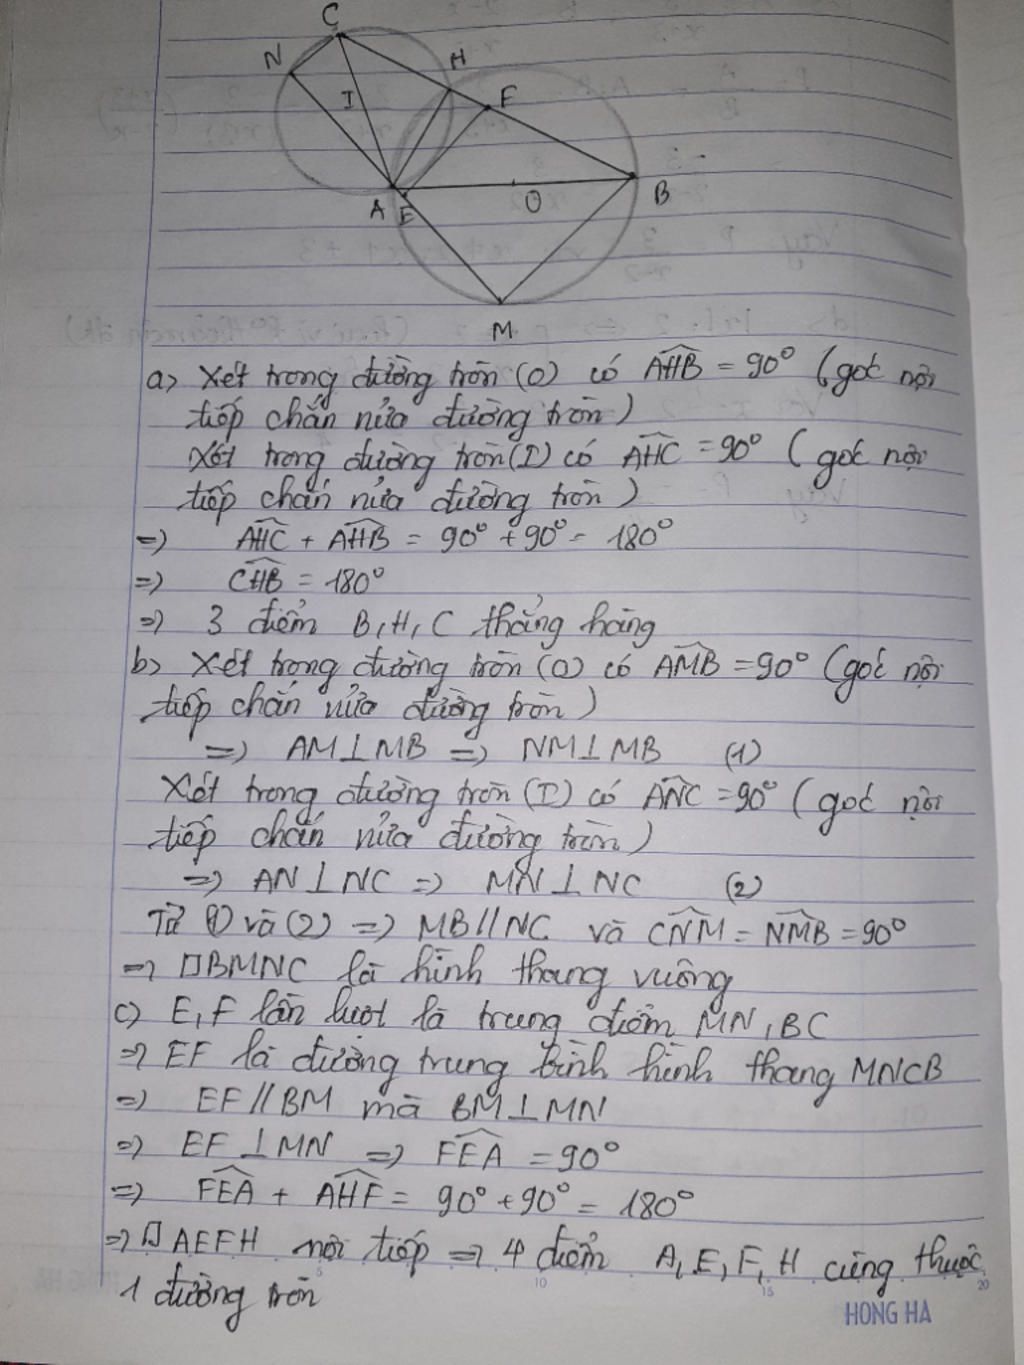 C
N
H
I
F
A
E
O
B
M
a) Xét trong đường tròn (O) có AHB = 90° (góc nội
tiếp chắn nửa đường tròn)
Xét trong đường tròn (I) có AHC = 90° (góc nội
tiếp chắn nửa đường tròn)
=> AHC + AHB = 90° + 90° = 180°
=> CHB = 180°
=> 3 điểm B, H, C thẳng hàng
b) Xét trong đường tròn (O) có AMB = 90° (góc nội
tiếp chắn nửa đường tròn)
=> AM ⊥ MB => NM ⊥ MB (1)
Xét trong đường tròn (I) có ANC = 90° (góc nội
tiếp chắn nửa đường tròn)
=> AN ⊥ NC => MN ⊥ NC (2)
Từ (1) và (2) => MB // NC và CNM = NMB = 90°
=> □BMNC là hình thang vuông
c) E, F lần lượt là trung điểm MN, BC
=> EF là đường trung bình hình thang MNCB
=> EF // BM mà BM ⊥ MN
=> EF ⊥ MN => FEA = 90°
=> FEA + AHF = 90° + 90° = 180°
=> □ AEFH nội tiếp => 4 điểm A, E, F, H cùng thuộc
1 đường tròn
5 10 15 20
HONG HA